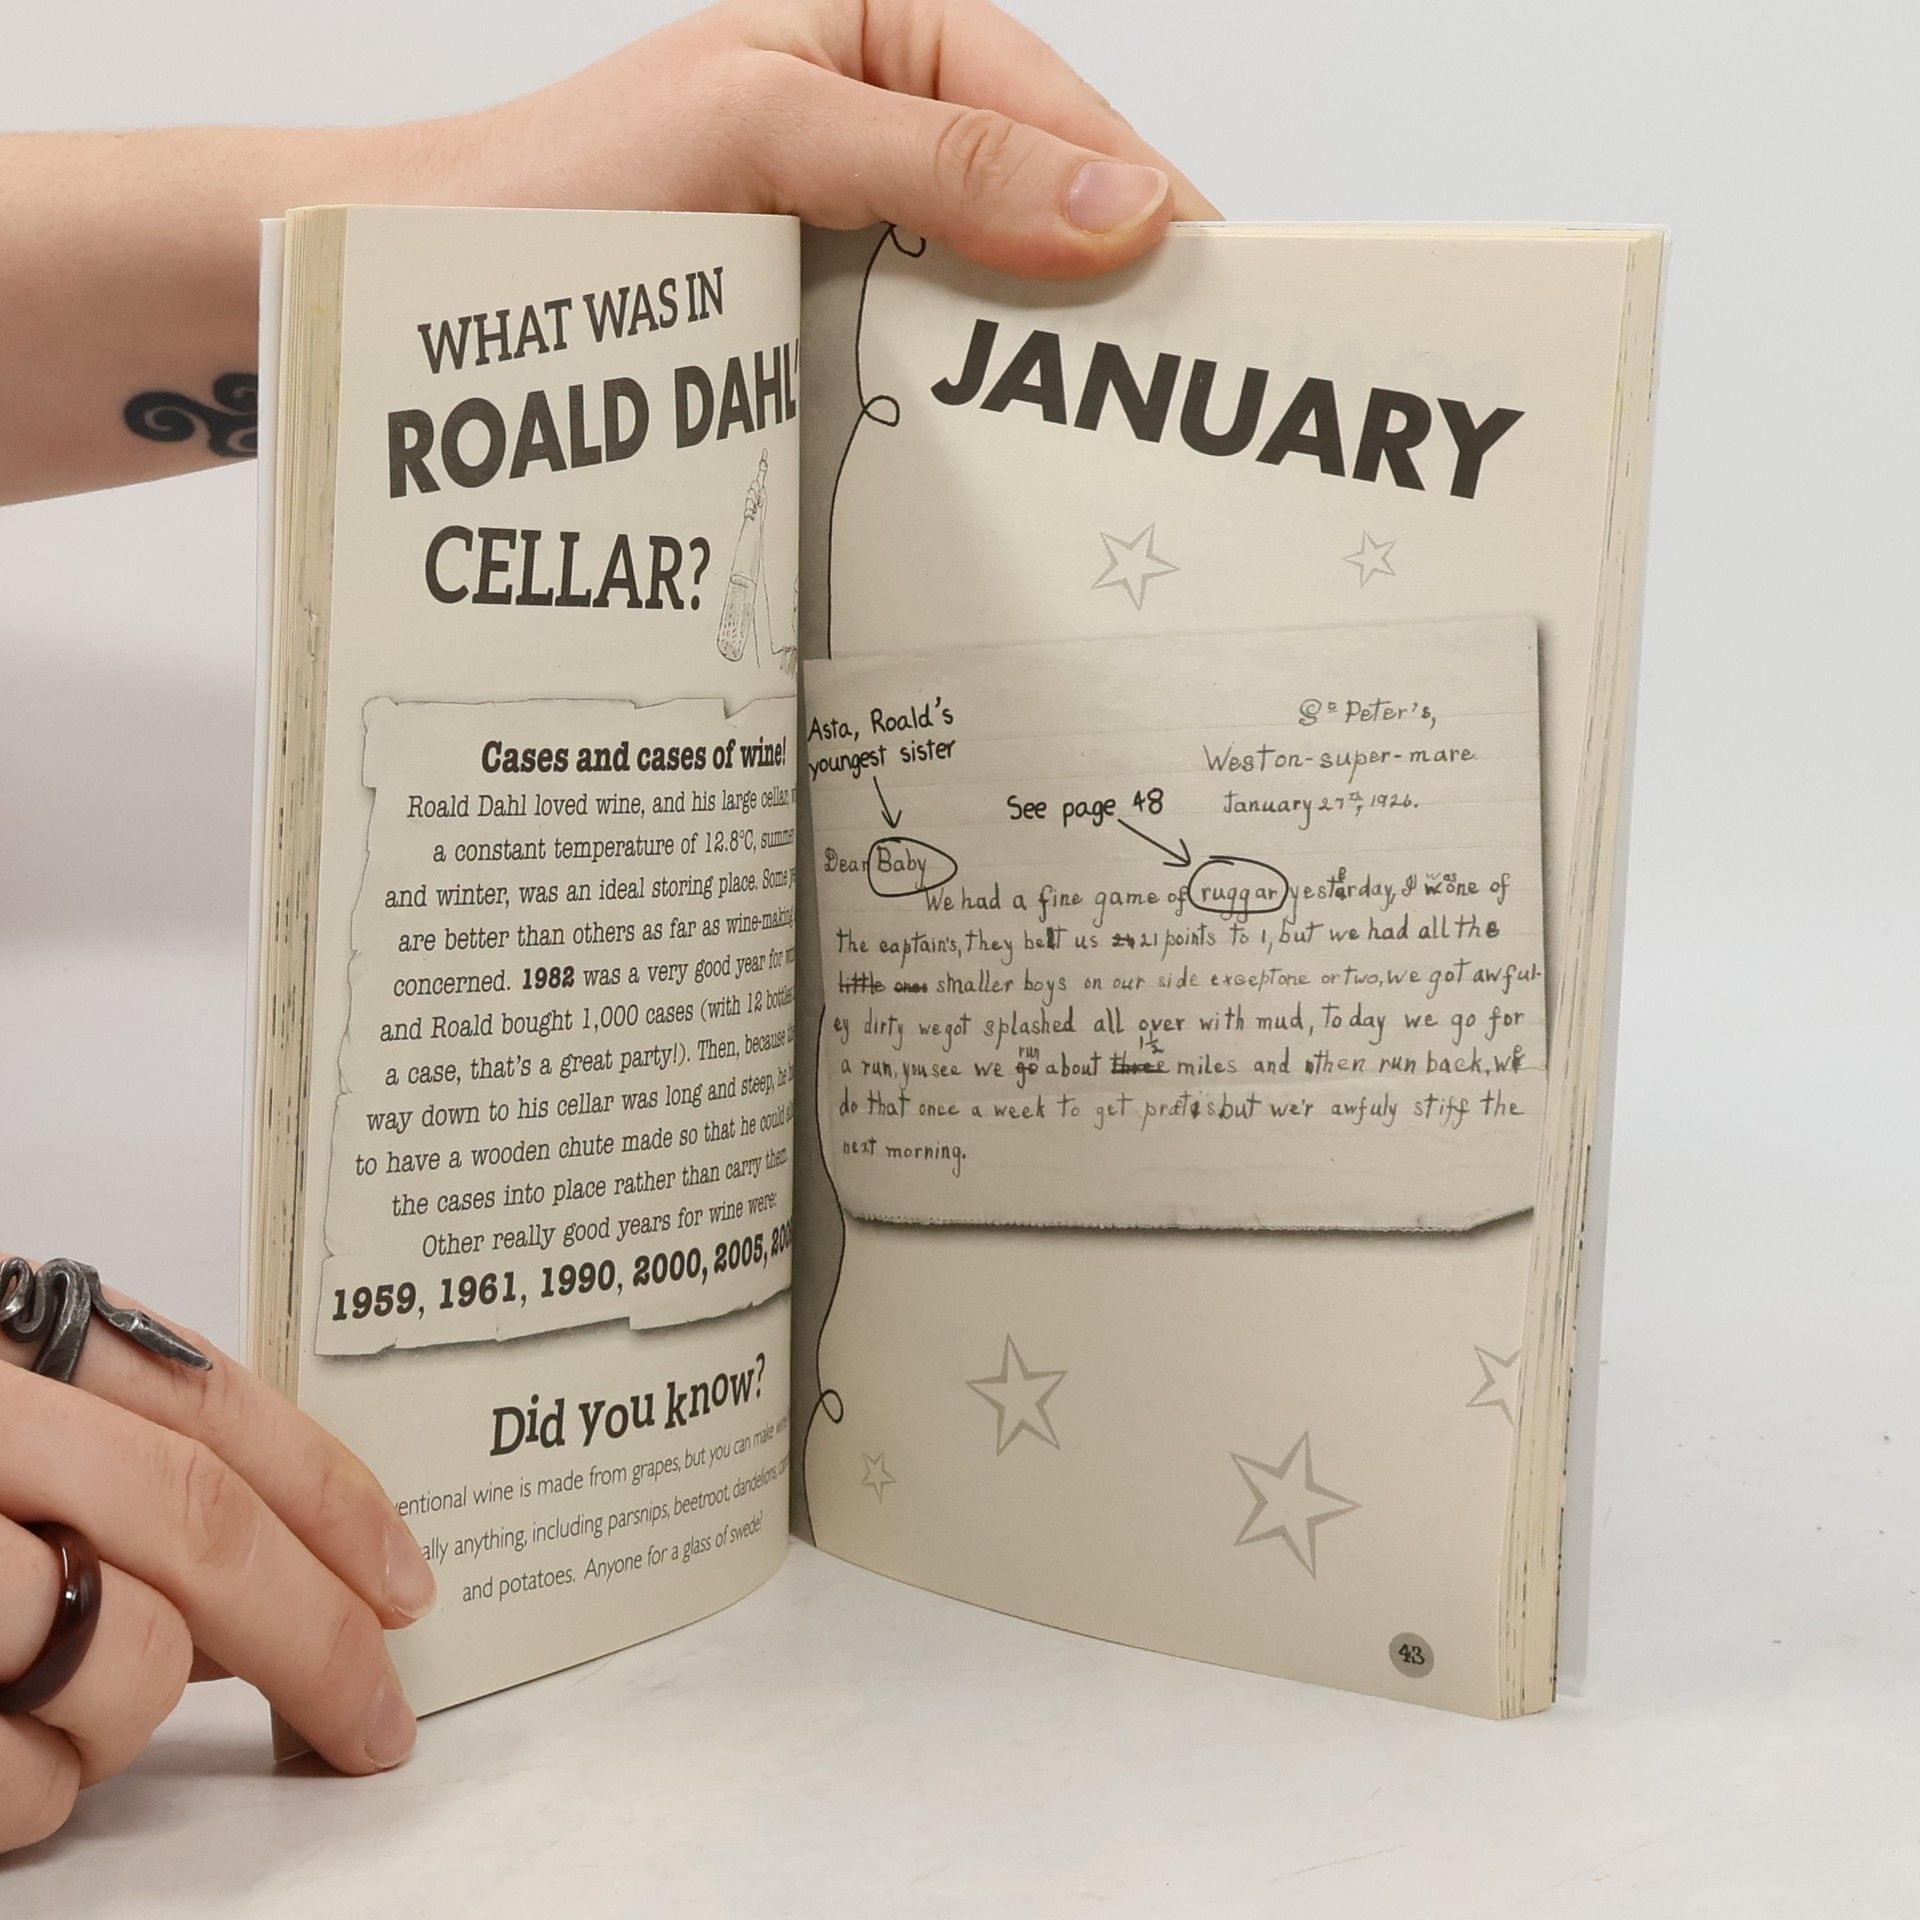 WHAT WAS IN
ROALD DAHL'
CELLAR?
Cases and cases of wine!
Roald Dahl loved wine, and his large cellar,
a constant temperature of 12.8°C, summer
and winter, was an ideal storing place. Some
are better than others as far as wine-making
concerned. 1982 was a very good year for
and Roald bought 1,000 cases (with 12 bottles
a case, that's a great party!). Then, because
way down to his cellar was long and steep, he
to have a wooden chute made so that he could
the cases into place rather than carry them.
Other really good years for wine were:
1959, 1961, 1990, 2000, 2005,
Did you know?
ventional wine is made from grapes, but you can make
ally anything, including parsnips, beetroot, dandelions,
and potatoes. Anyone for a glass of swede?
JANUARY
Asta, Roald's
youngest sister
St Peter's,
Weston-super-mare.
See page 48
January 27th, 1926.
Dear Baby
We had a fine game of ruggar yesterday, I was one of
the captain's, they bett us 24 21 points to 1, but we had all the
little ones smaller boys on our side except one or two, we got awful-
ey dirty we got splashed all over with mud, To day we go for
a run, you see we go run about three 1½ miles and then run back, we
do that once a week to get but we'r awfuly stiff the
next morning.
43